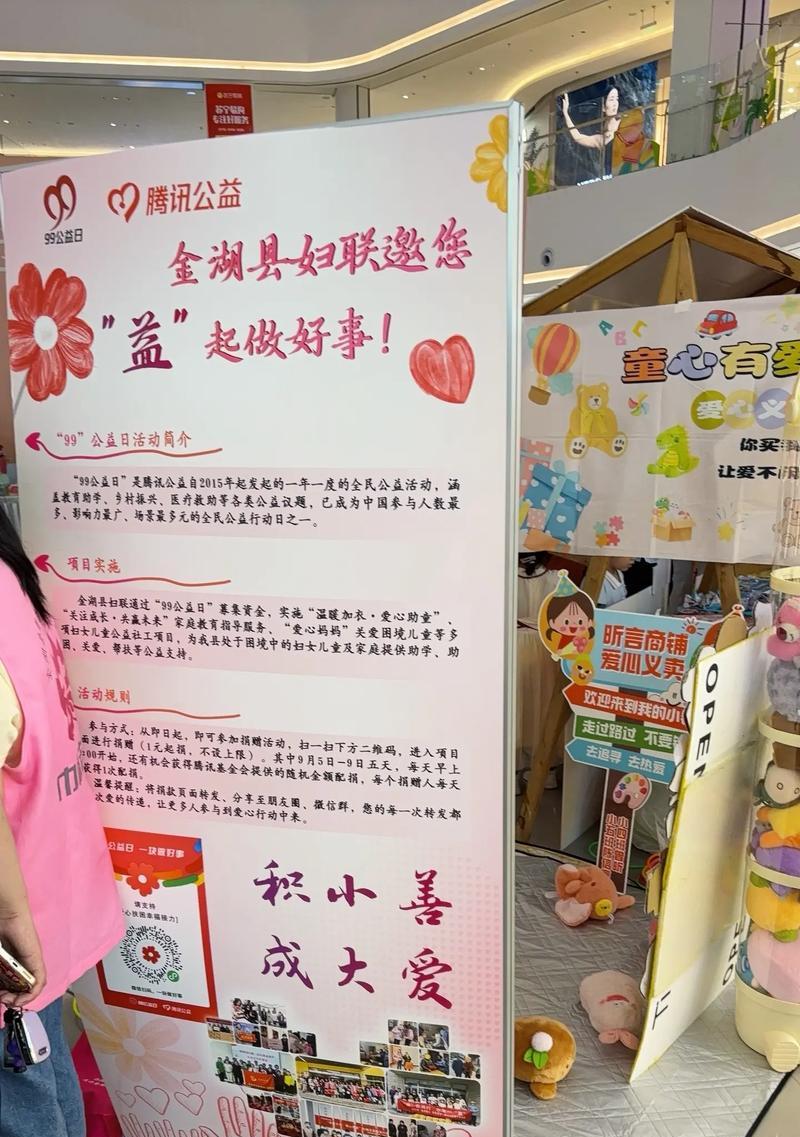 苏宁易购
专注好服务
99公益日
腾讯公益
金湖县妇联邀您
"益"起做好事！
"99"公益日活动简介
"99公益日"是腾讯公益自2015年起发起的一年一度的全民公益活动，涵
盖教育助学、乡村振兴、医疗救助等各类公益议题，已成为中国参与人数最
多、影响力最广、场景最多元的全民公益行动日之一。
项目实施
金湖县妇联通过"99公益日"募集资金，实施"温暖加衣·爱心助童"、
"关注成长·共赢未来"家庭教育指导服务、"爱心妈妈"关爱困境儿童等多
项妇女儿童公益社工项目，为我县处于困境中的妇女儿童及家庭提供助学、助
困、关爱、帮扶等公益支持。
活动规则
参与方式：从即日起，即可参加捐赠活动，扫一扫下方二维码，进入项目
面进行捐赠（1元起捐，不设上限）。其中9月5日-9日五天，每天早上
:00开始，还有机会获得腾讯基金会提供的随机金额配捐，每个捐赠人每天
获得1次配捐。
温馨提醒：将捐款页面转发、分享至朋友圈、微信群，您的每一次转发都
次爱的传递，让更多人参与到爱心行动中来。
公益日 一块做好事
请支持
心扶困幸福接力]
微信扫码，一块做好事
腾讯公益
积小善
成大爱
A B C
童心有爱
爱心义
你买
让爱不
昕言商铺
爱心义卖
欢迎来到我的小
走过路过 不要
去追寻 去热爱
OPEN